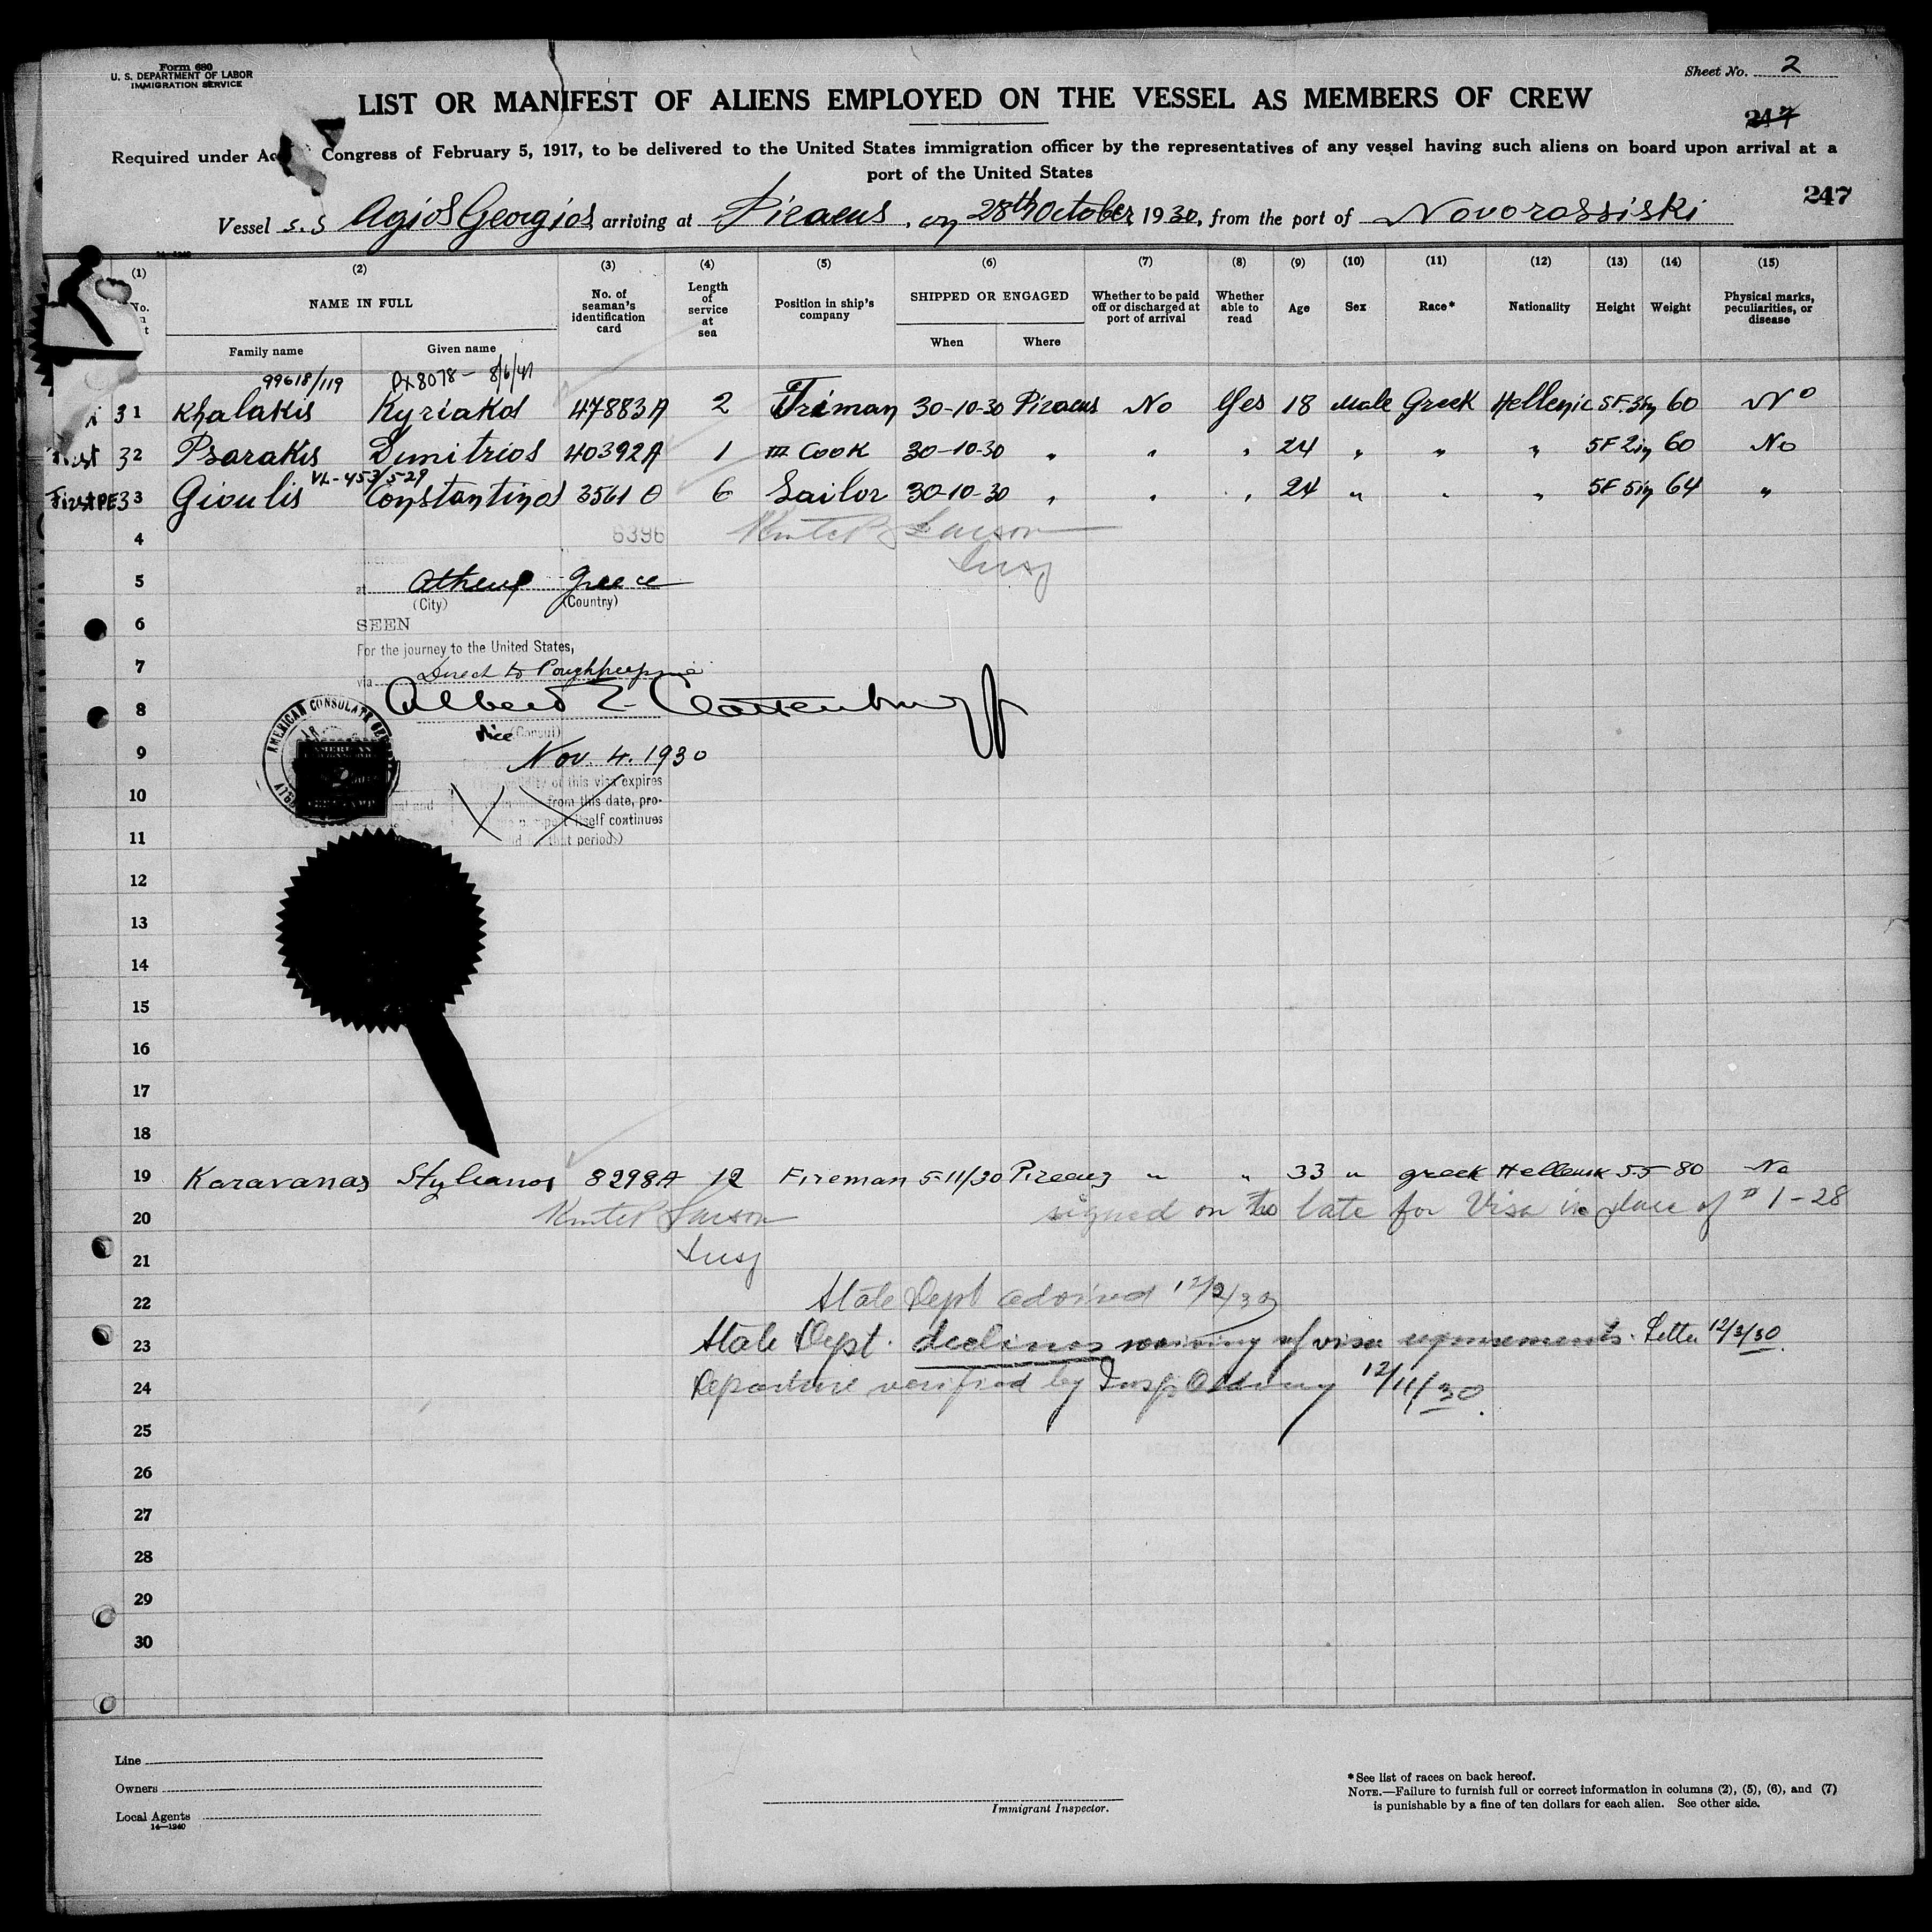 Form 680
U. S. DEPARTMENT OF LABOR
IMMIGRATION SERVICE
Sheet No. 2
LIST OR MANIFEST OF ALIENS EMPLOYED ON THE VESSEL AS MEMBERS OF CREW
247
Required under Ac Congress of February 5, 1917, to be delivered to the United States immigration officer by the representatives of any vessel having such aliens on board upon arrival at a
port of the United States
247
Vessel S.S Agios Georgios, arriving at Piraeus, on 28th October, 1930, from the port of Novorossiski
(1) (2) (3) (4) (5) (6) (7) (8) (9) (10) (11) (12) (13) (14) (15)
No. NAME IN FULL No. of seaman's identification card Length of service at sea Position in ship's company SHIPPED OR ENGAGED Whether to be paid off or discharged at port of arrival Whether able to read Age Sex Race* Nationality Height Weight Physical marks, peculiarities, or disease
Family name Given name When Where
99618/119 8/6/41
31 Khalakis Kyriakos 47883A 2 Friman 30-10-30 Piraeus No Yes 18 Male Greek Hellenic 5F.3in 60 No
First 32 Psarakis Dimitrios 40392A 1 III Cook 30-10-30 " " " 24 " " " 5F 2in 60 No
VL-453/529
First PE 33 Gioulis Constantinos 3561 θ 6 Sailor 30-10-30 " " " 24 " " " 5F 5in 64 "
4 6396 Larson
Insp
5 at Athens Greece
(City) (Country)
6 SEEN
For the journey to the United States,
7 via Direct to Poughkeepsie
8 Albert E. Clattenburg Jr
Vice (Consul)
AMERICAN CONSULATE GE
9 Nov. 4. 1930
validity of this visa expires
10 from this date, pro-
itself continues
11 that period.)
12
13
14
15
16
17
18
19 Karavanas Stylianos 8298A 12 Fireman 5-11/30 Pireaus " " 33 " greek Hellenik 5-5 80 No
20 Larson signed on too late for Visa in place of # 1-28
21 Insp
22 State Dept advised 12/2/30
23 State Dept. declines waiving of visa requirements. Letter 12/3/30.
24 Departure verified by Insp 12/11/30.
25
26
27
28
29
30
Line
Owners
Local Agents
14—1240
Immigrant Inspector.
*See list of races on back hereof.
NOTE.—Failure to furnish full or correct information in columns (2), (5), (6), and (7)
is punishable by a fine of ten dollars for each alien. See other side.